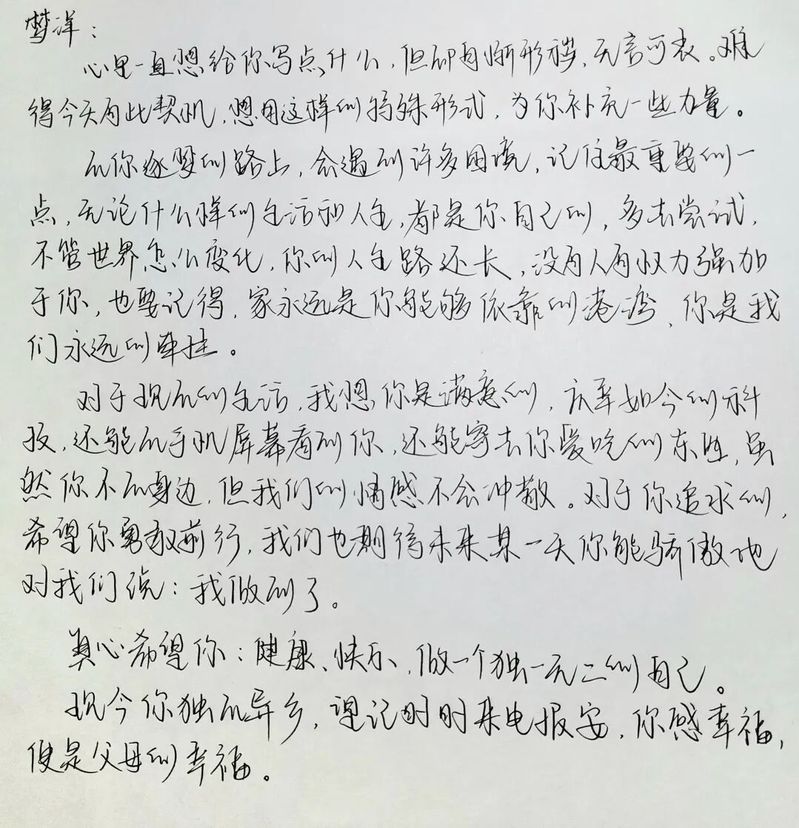 梦洋：
心里一直想给你写点什么，但却自惭形秽，无言可表。难
得今天有此契机，想用这样的特殊形式，为你补充一些力量。
在你逐梦的路上，会遇到许多困境，记住最重要的一
点，无论什么样的生活和人生，都是你自己的，多去尝试，
不管世界怎么变化，你的人生路还长，没有人有权力强加
于你，也要记得，家永远是你能够依靠的港湾、你是我
们永远的牵挂。
对于现在的生活，我想你是满意的，庆幸如今的科
技，还能在手机屏幕看到你，还能寄去你爱吃的东西，虽
然你不在身边，但我们的情感不会冲散。对于你追求的，
希望你勇敢前行，我们也期待未来某一天你能骄傲地
对我们说：我做到了。
真心希望你：健康、快乐、做一个独一无二的自己。
现今你独在异乡，谨记时时来电报安，你感幸福，
便是父母的幸福。